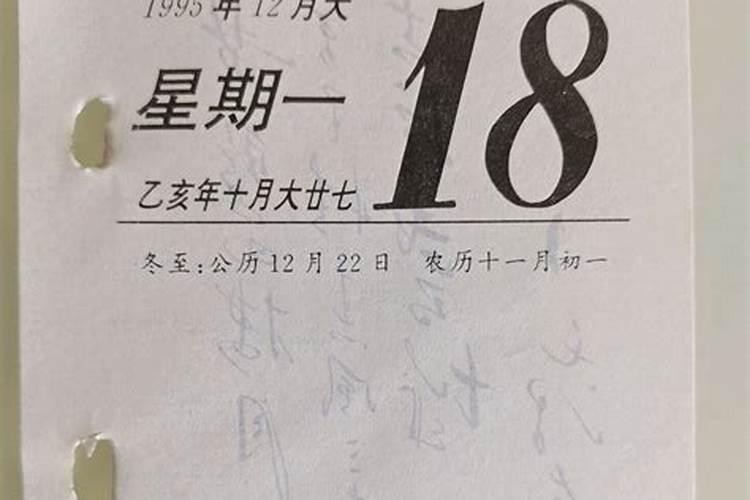 1995年12月大
18
星期一
乙亥年十月大廿七
冬至:公历12月22日 农历十一月初一